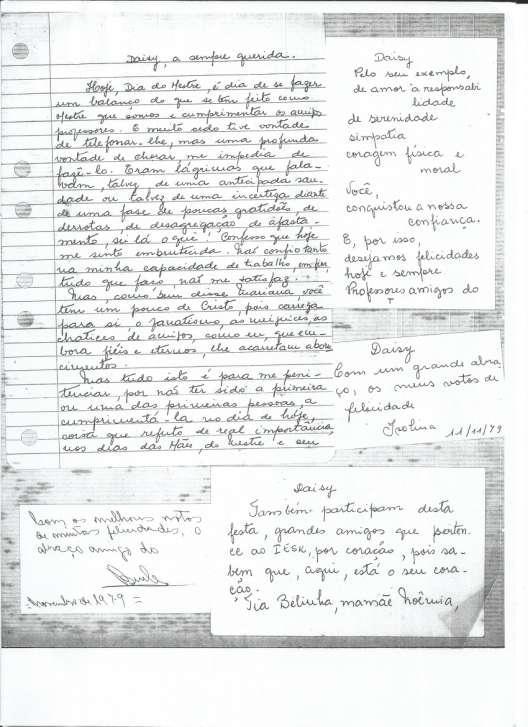 Daisy, a sempre querida.
Hoje, Dia do Mestre, é dia de se fazer
um balanço do que se têm feito como
Mestre que somos e cumprimentar os amigos
professores. E muito cedo tive vontade
de telefonar-lhe, mas uma profunda
vontade de chorar, me impedia de
fazê-lo. Eram lágrimas que fala-
vam, talvez de uma antecipada sau-
dade ou talvez de uma incerteza diante
de uma fase de poucas gratidões, de
derrotas, de desagregação, de afasta-
mento, sei lá o que! Confesso que hoje
me sinto embrutecida. Não confio tanto
na minha capacidade de trabalho, enfim,
tudo que faço, não me satisfaz.
Mas, como bem disse, Mariana você
tem um pouco de Cristo, pois carrega
para si, o fanatismo, as meiguices, as
chatices de amigos, como eu, que em-
bora fiéis e eternos, lhe acarretam abor-
recimentos.
Mas tudo isto é para me peni-
tenciar, por não ter sido a primeira
ou uma das primeiras pessoas, a
cumprimentá-la no dia de hoje,
coisa que reputo de real importância,
nos dias das Mães, do Mestre e seu
Daisy
Pelo seu exemplo,
de amor à responsabi
lidade
de serenidade
simpatia
coragem física e
moral
Você,
conquistou a nossa
confiança.
E, por isso,
desejamos felicidades
hoje e sempre
Professores amigos do
Daisy
Com um grande abra
ço, os meus votos de
felicidade
11/11/79
Com os melhores votos
de muitas felicidades, o
abraço amigo do
Novembro de 1979 =
Daisy
Também participam desta
festa, grandes amigos que perten
ce ao IESK, por coração, pois sa-
bem que, aqui, está o seu cora-
ção.
Tia Belinha, mamãe Noêmia,